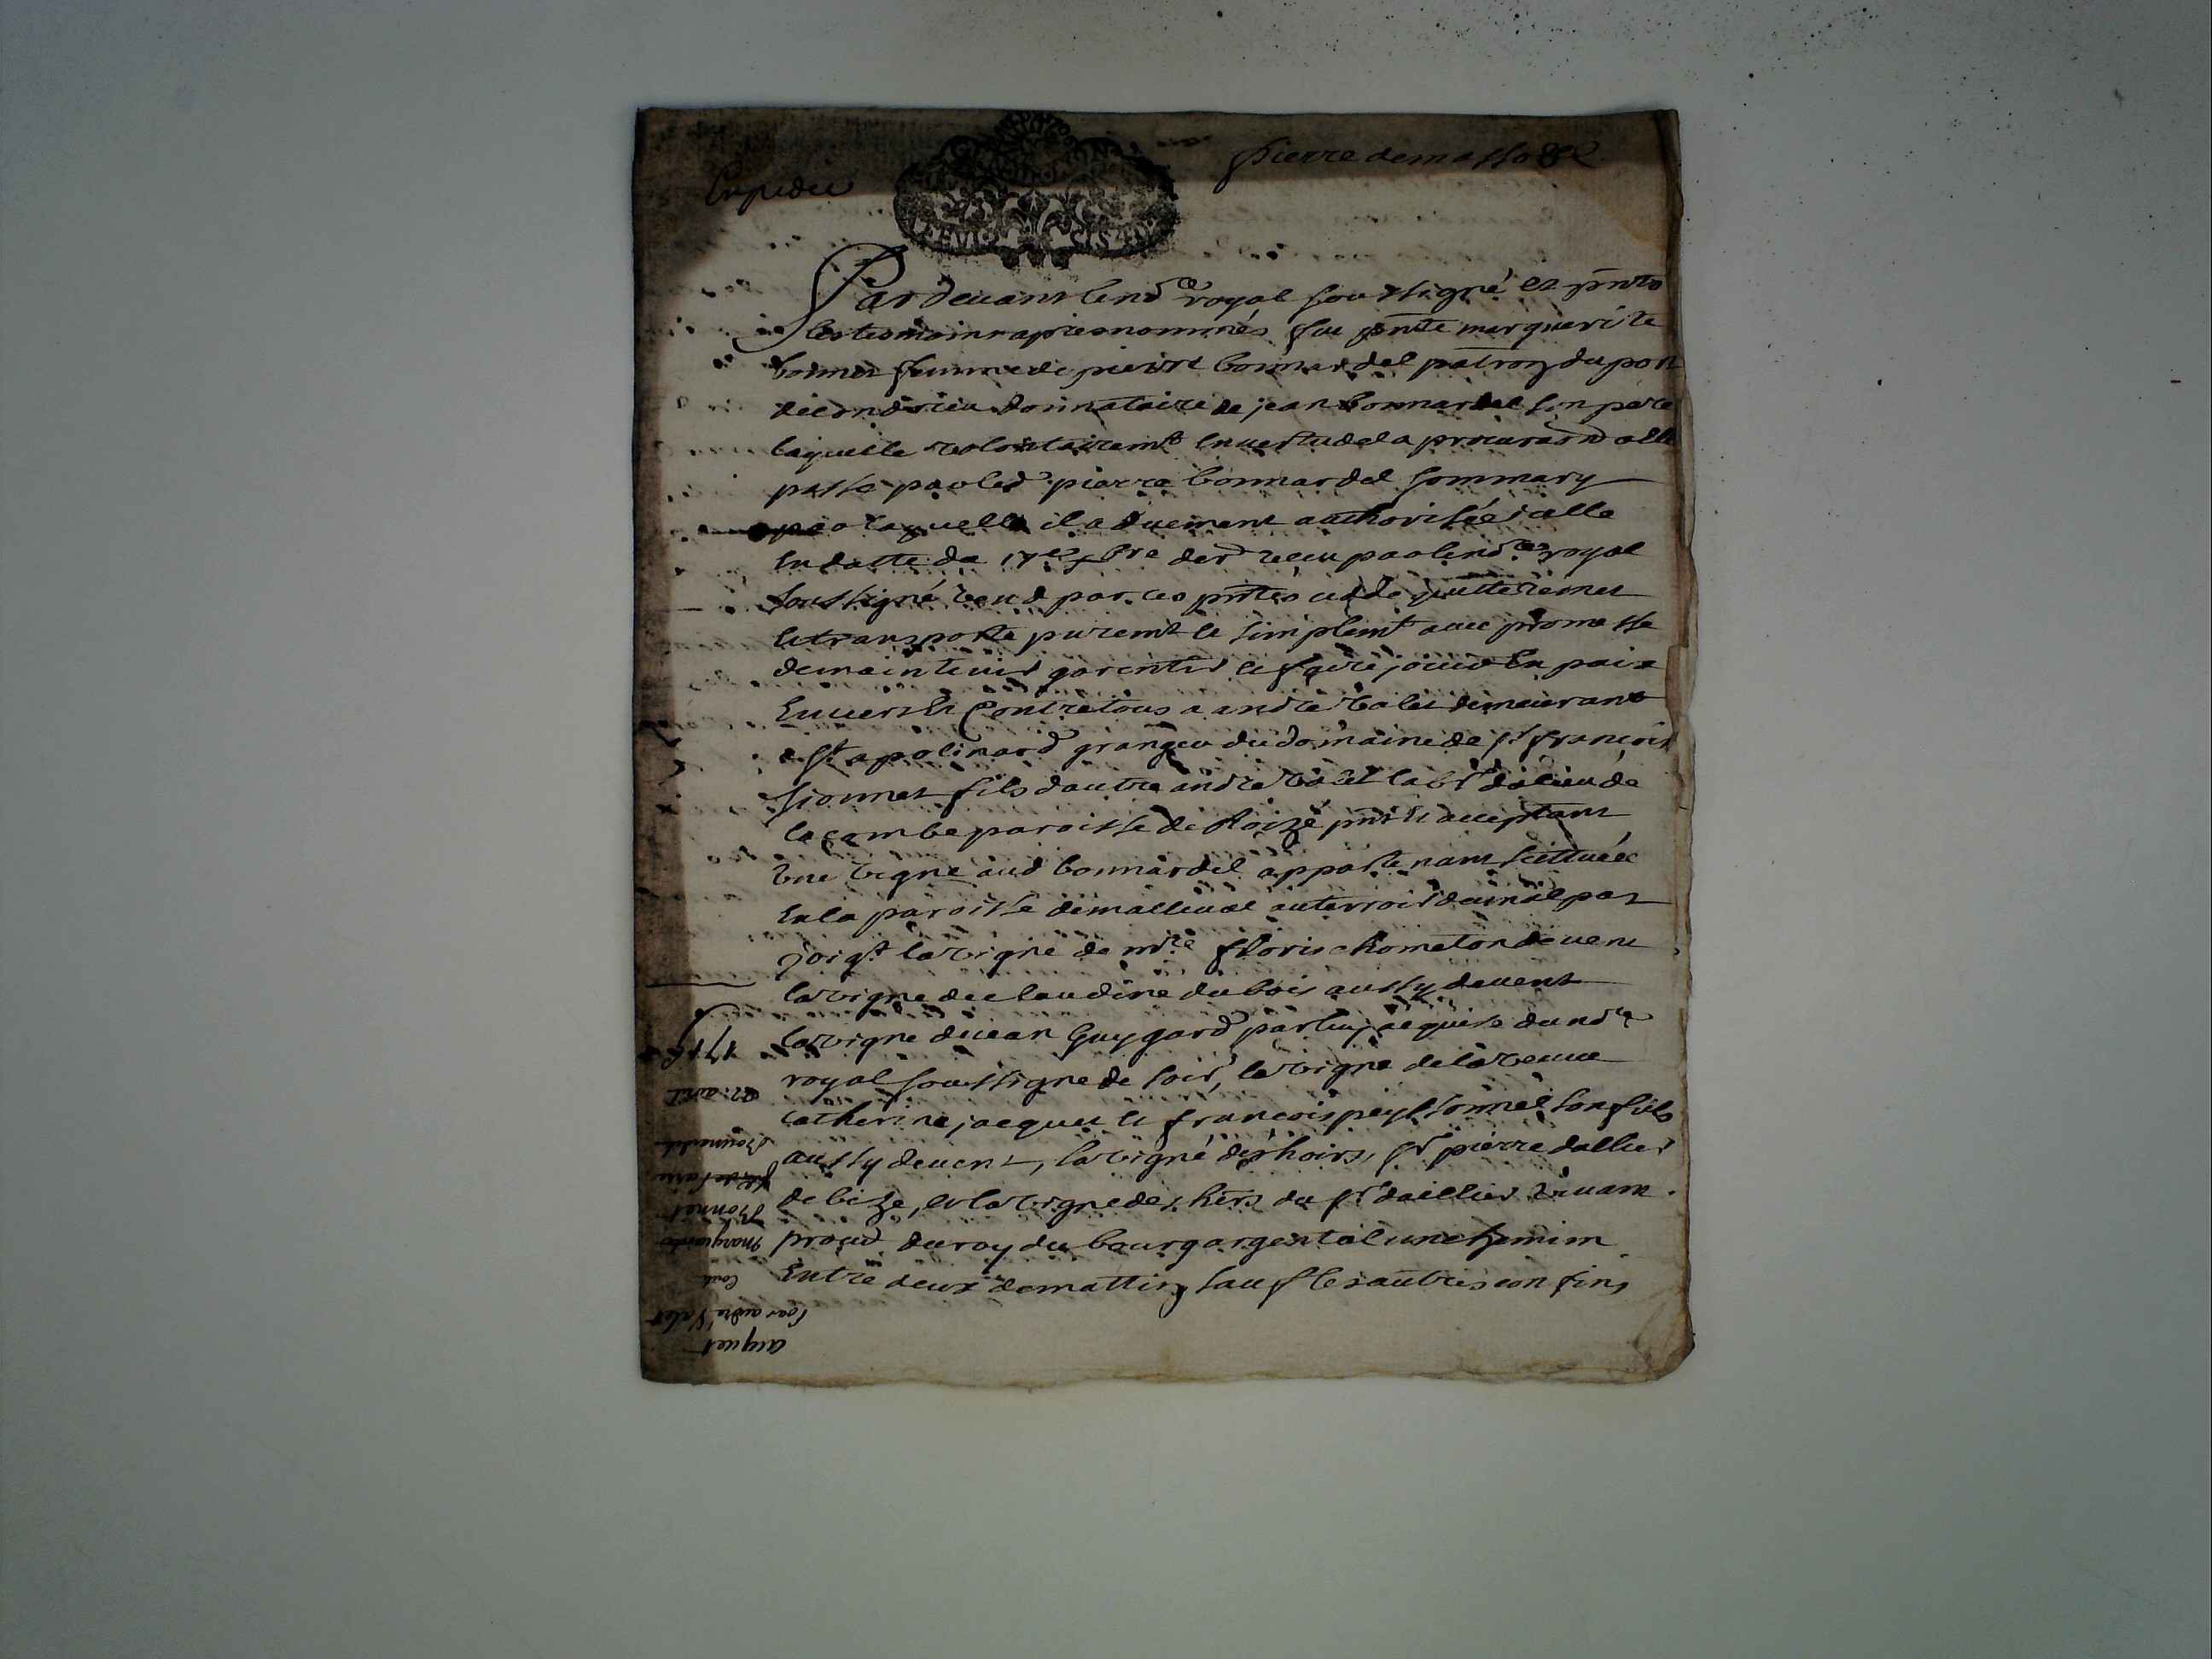 Expedié
pierre demasso
Pardevant le no.re royal soussigné et pnts
les tesmoins apres nommés fut pnte marguerite
bonnet femme de pierre bonnardel patron du port
de condrieu donnataire de jean bonnardel son pere
laquelle volontairemt en vertu de la procura̅o̅n a elle
passé par led pierre bonnardel son mary
par laquelle il a duement authorisée icelle
en datte du 17e xbre der receu par le no.re royal
soussigné vend par ces pntes cedde quitte remet
et transporte puremt et simplemt avec promesse
de maintenir garentir et faire jouir en paix
envers et contre tous a andré valet demeurant
a st apolinard granger du domaine de sr francois
fils d'autre andré valet labr du lieu de
la combe paroisse de Roizé pnt et acceptant
une vigne aud bonnardel appartenant scittuée
en la paroisse de malleval au terroir de
joigt la vigne de mre floris chometon de vent
la vigne de claudine du bois aussy de vent
la vigne de jean guygard par luy acquise du no.re
royal soussigne de soir, la vigne de la veuve
catherine jacquet et francois peyssonnel son fils
aussy de vent, la vigne des hoirs sr pierre dallier
de bize, et la vigne des hers du sr daillier vivant
procur du roy du bourg argental un chemin
entre deux de mattin sauf les autres confins
acquet
pour andré Valet
cont.
marguerite
Bonnet
Bonnardel
22 aoust